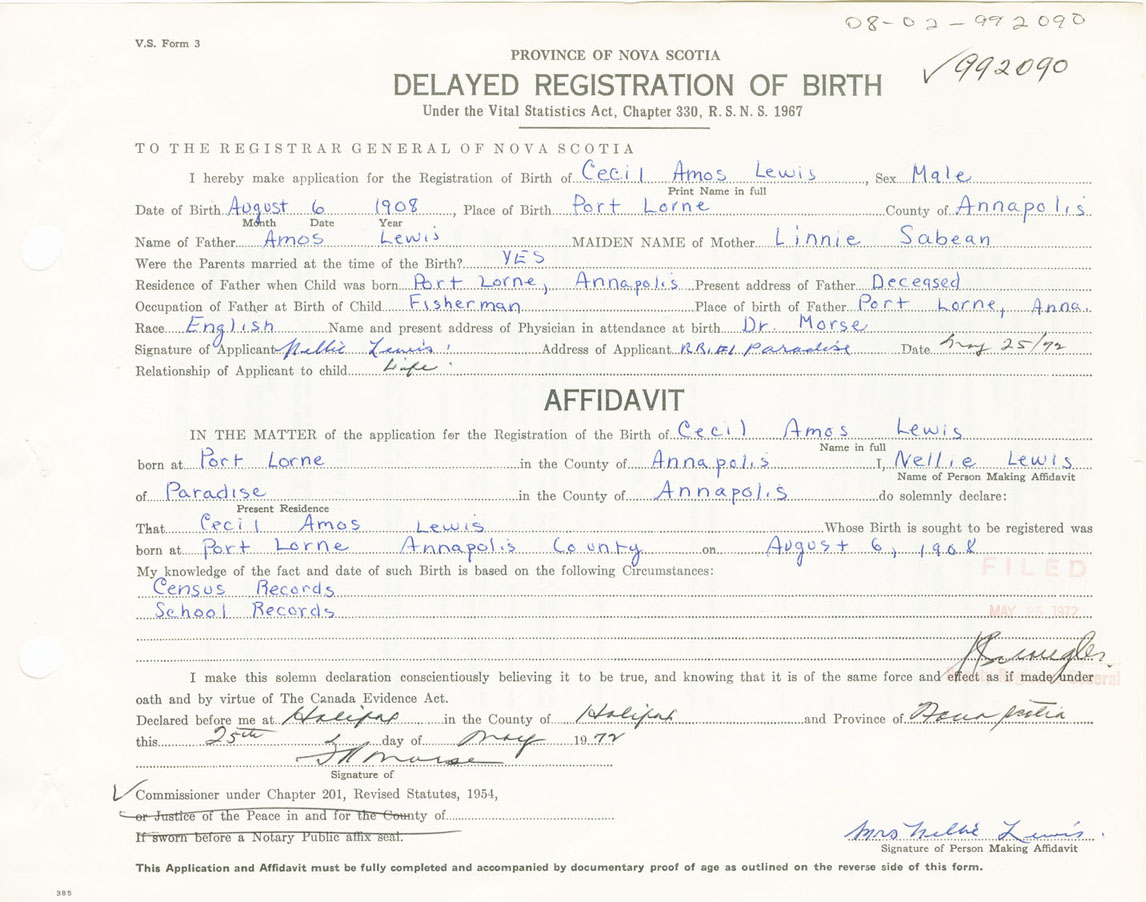 08-02-992090
V.S. Form 3
✓992090
PROVINCE OF NOVA SCOTIA
DELAYED REGISTRATION OF BIRTH
Under the Vital Statistics Act, Chapter 330, R. S. N. S. 1967
TO THE REGISTRAR GENERAL OF NOVA SCOTIA
I hereby make application for the Registration of Birth of Cecil Amos Lewis, Sex Male
Print Name in full
Date of Birth August 6 1908, Place of Birth Port Lorne County of Annapolis
Month Date Year
Name of Father Amos Lewis MAIDEN NAME of Mother Linnie Sabean
Were the Parents married at the time of the Birth? YES
Residence of Father when Child was born Port Lorne, Annapolis Present address of Father Deceased
Occupation of Father at Birth of Child Fisherman Place of birth of Father Port Lorne, Anna.
Race English Name and present address of Physician in attendance at birth Dr. Morse
Signature of Applicant Nellie Lewis Address of Applicant R.R.#1 Paradise Date May 25/72
Relationship of Applicant to child Wife
AFFIDAVIT
IN THE MATTER of the application for the Registration of the Birth of Cecil Amos Lewis
Name in full
born at Port Lorne in the County of Annapolis I, Nellie Lewis
Name of Person Making Affidavit
of Paradise in the County of Annapolis do solemnly declare:
Present Residence
That Cecil Amos Lewis Whose Birth is sought to be registered was
born at Port Lorne Annapolis County on August 6, 1908
My knowledge of the fact and date of such Birth is based on the following Circumstances:
FILED
Census Records
School Records
MAY 25 1972
I make this solemn declaration conscientiously believing it to be true, and knowing that it is of the same force and effect as if made under
oath and by virtue of The Canada Evidence Act.
Declared before me at Halifax in the County of Halifax and Province of Nova Scotia
this 25th day of May 1972
Morse
Signature of
✓ Commissioner under Chapter 201, Revised Statutes, 1954,
or Justice of the Peace in and for the County of
If sworn before a Notary Public affix seal.
Mrs Nellie Lewis
Signature of Person Making Affidavit
This Application and Affidavit must be fully completed and accompanied by documentary proof of age as outlined on the reverse side of this form.
385